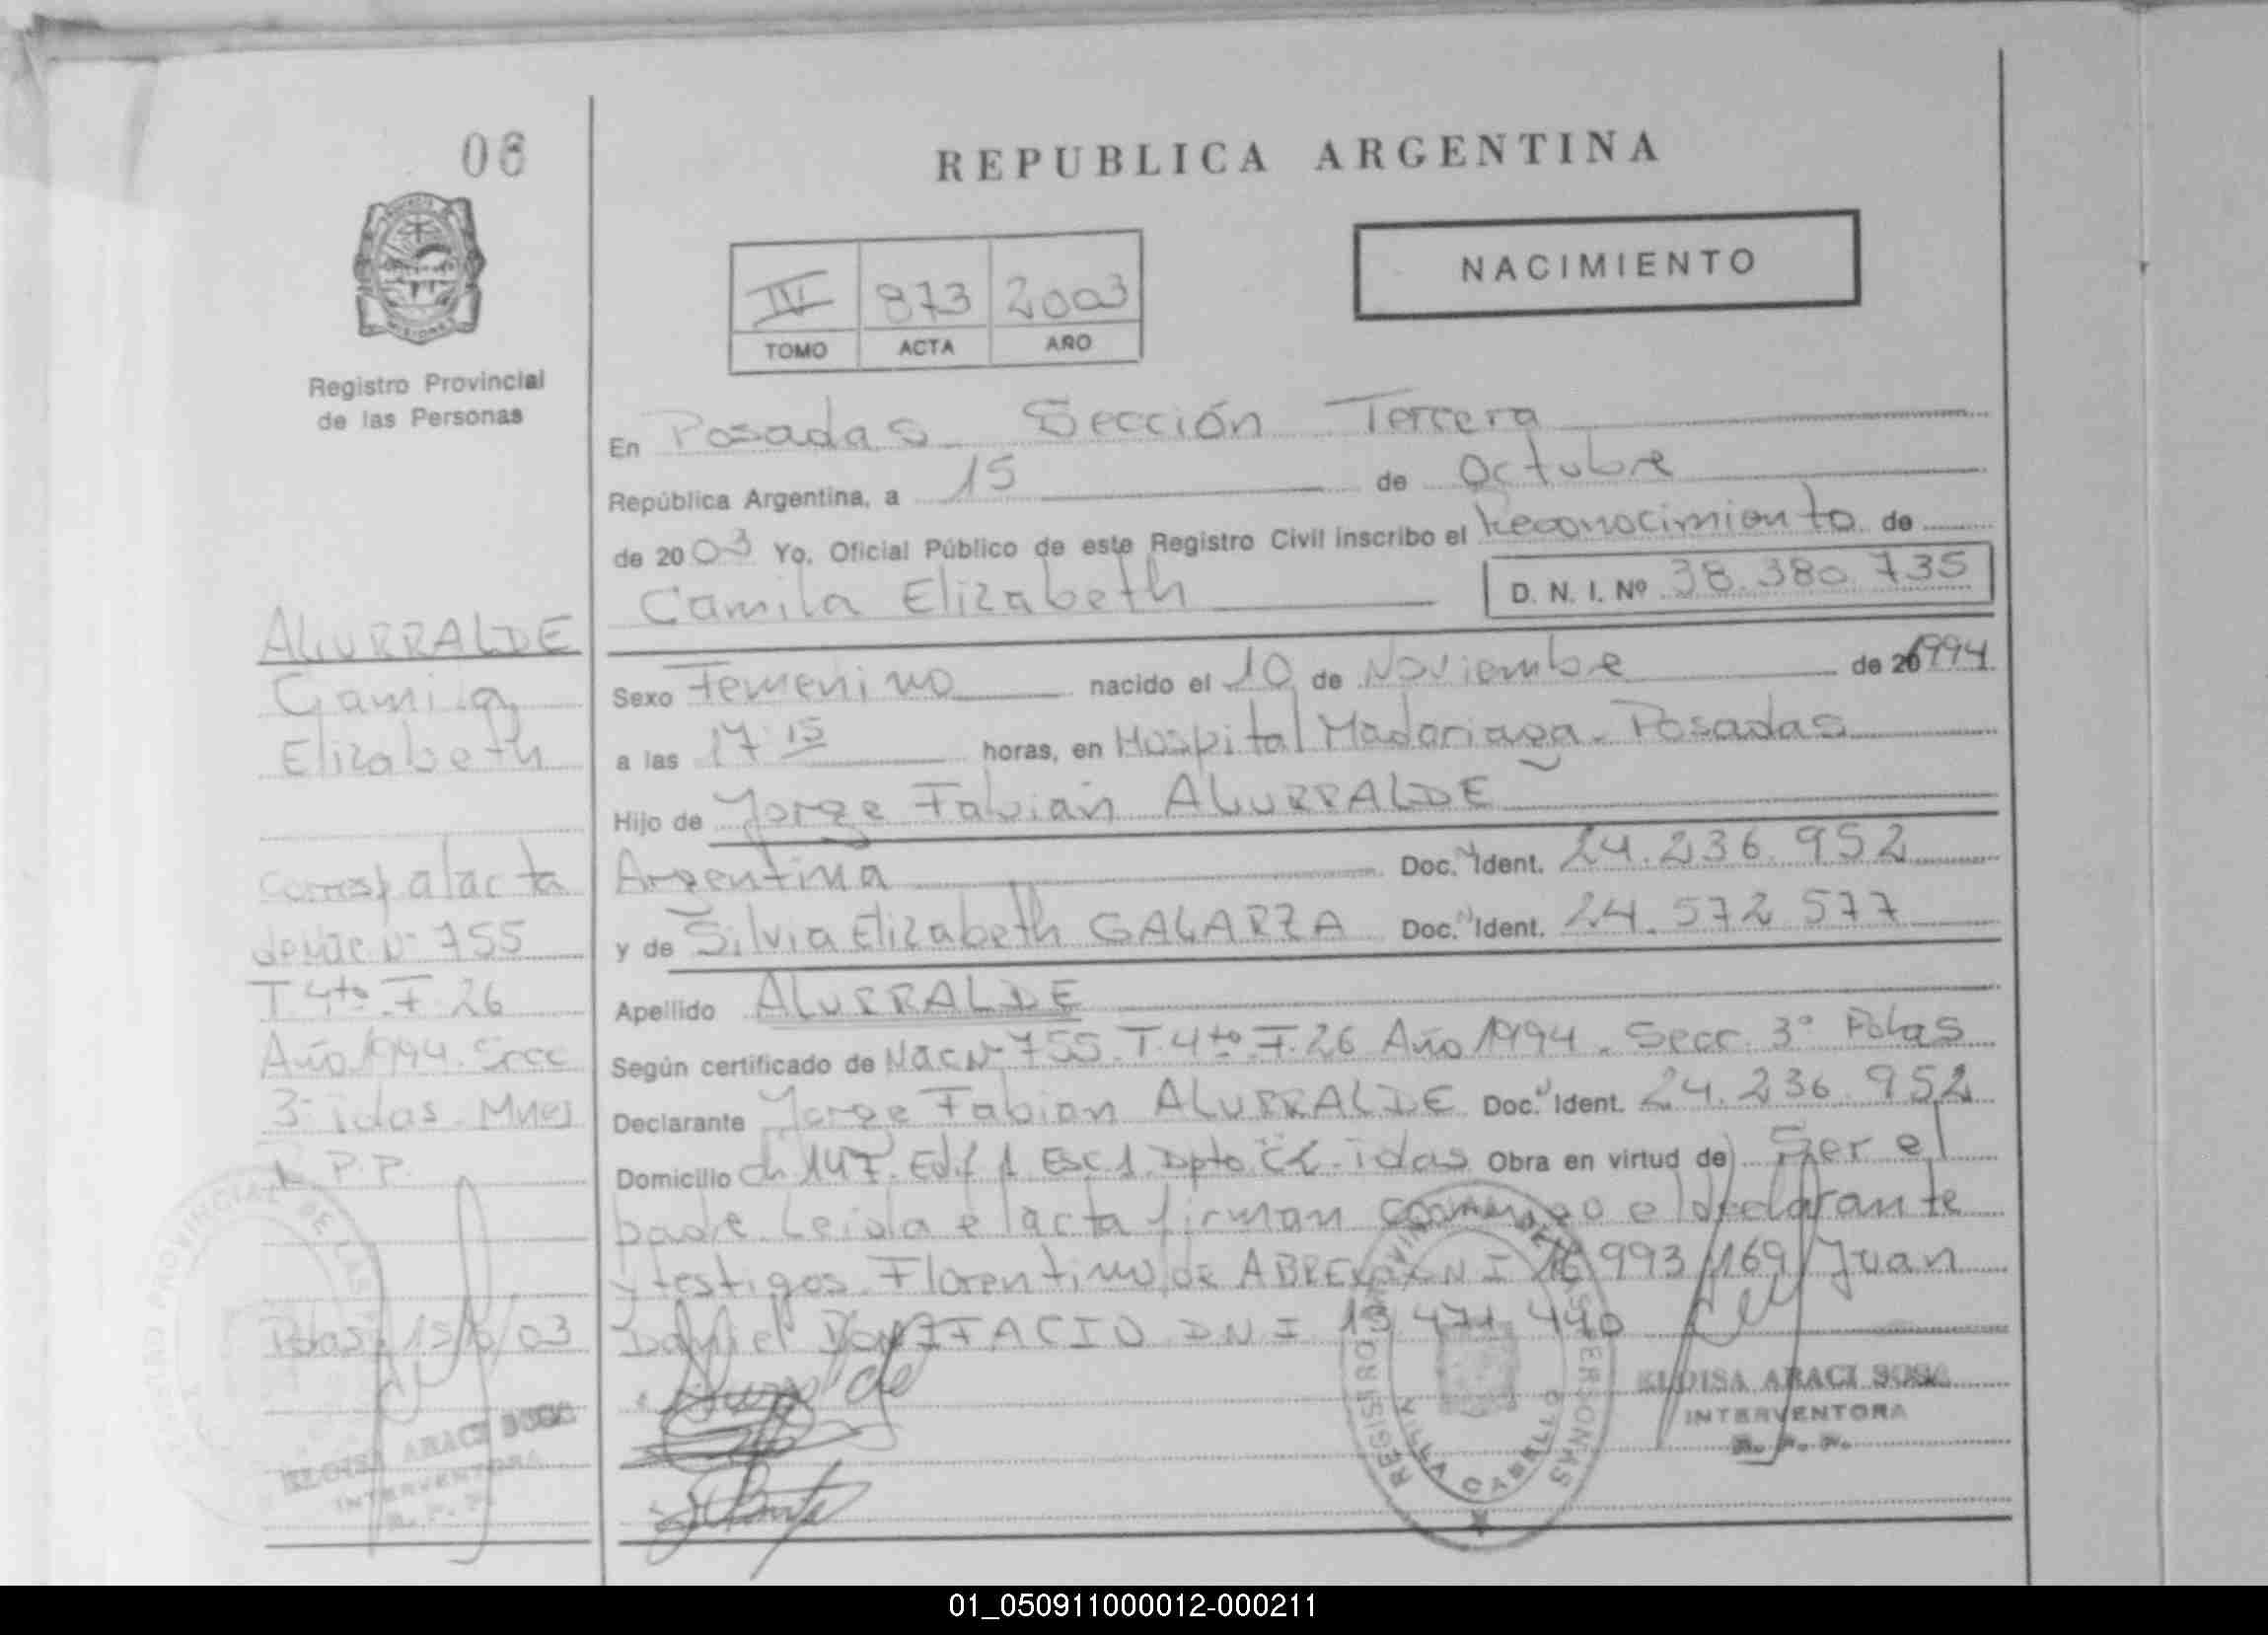 06
REPUBLICA ARGENTINA
NACIMIENTO
IV 873 2003
TOMO ACTA AÑO
Registro Provincial
de las Personas
En Posadas Sección Tercera
República Argentina, a 15 de Octubre
de 2003 Yo, Oficial Público de este Registro Civil inscribo el Reconocimiento de
Camila Elizabeth D. N. I. Nº 38.380.735
Sexo Femenino nacido el 10 de Noviembre de 1994
a las 17 15 horas, en Hospital Madariaga - Posadas
Hijo de Jorge Fabian ALURRALDE
Argentina Doc. Ident. 24.236.952
y de Silvia Elizabeth GALARZA Doc. Ident. 24.572.577
Apellido ALURRALDE
Según certificado de Nac Nº 755 T. 4to F. 26 Año 1994. Secc 3º Pdas
Declarante Jorge Fabian ALURRALDE Doc. Ident. 24.236.952
Domicilio ch 147 Edif 1 Esc 1 Dpto Obra en virtud de Ser el
padre Leida el acta firman conmigo el declarante
y testigos Florentino de ABREU DNI 16 993 169 Juan
Daniel BONIFACIO DNI 13 471 440
ALURRALDE
Camila
Elizabeth
Corresp al acta
de Nac Nº 755
T 4to F 26
Año 1994. Secc
3º Pdas Mnes
R. P. P.
Pdas 15/10/03
ELOISA ARACI SOSA
INTERVENTORA
R. P. P.
REGISTRO PROVINCIAL DE LAS PERSONAS
VILLA CABELLO
ELOISA ARACI SOSA
INTERVENTORA
R. P. P.
01_050911000012-000211